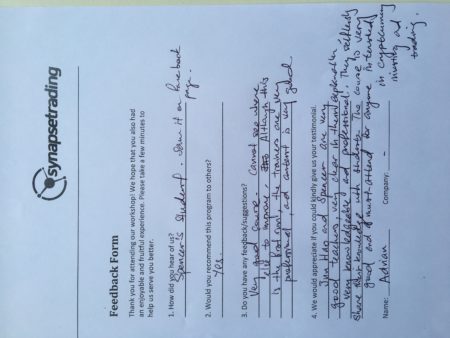 synapsetrading
Feedback Form
Thank you for attending our workshop! We hope that you also had
an enjoyable and fruitful experience. Please take a few minutes to
help us serve you better.
1. How did you hear of us?
Spencer's student. Saw it on Facebook
page.
2. Would you recommend this program to others?
Yes
3. Do you have any feedback/suggestions?
Very good course. Cannot see where
to improve. Although this
is the first run, the trainers are very
professional and content is very good.
4. We would appreciate if you could kindly give us your testimonial.
and Spencer are very
good teachers, very clear in their explanation,
very knowledgeable and professional. They selflessly
share their knowledge with students. The course is very
good and a must-attend for anyone interested
in cryptocurrency
investing and
trading.
Name: Adrian Company: -